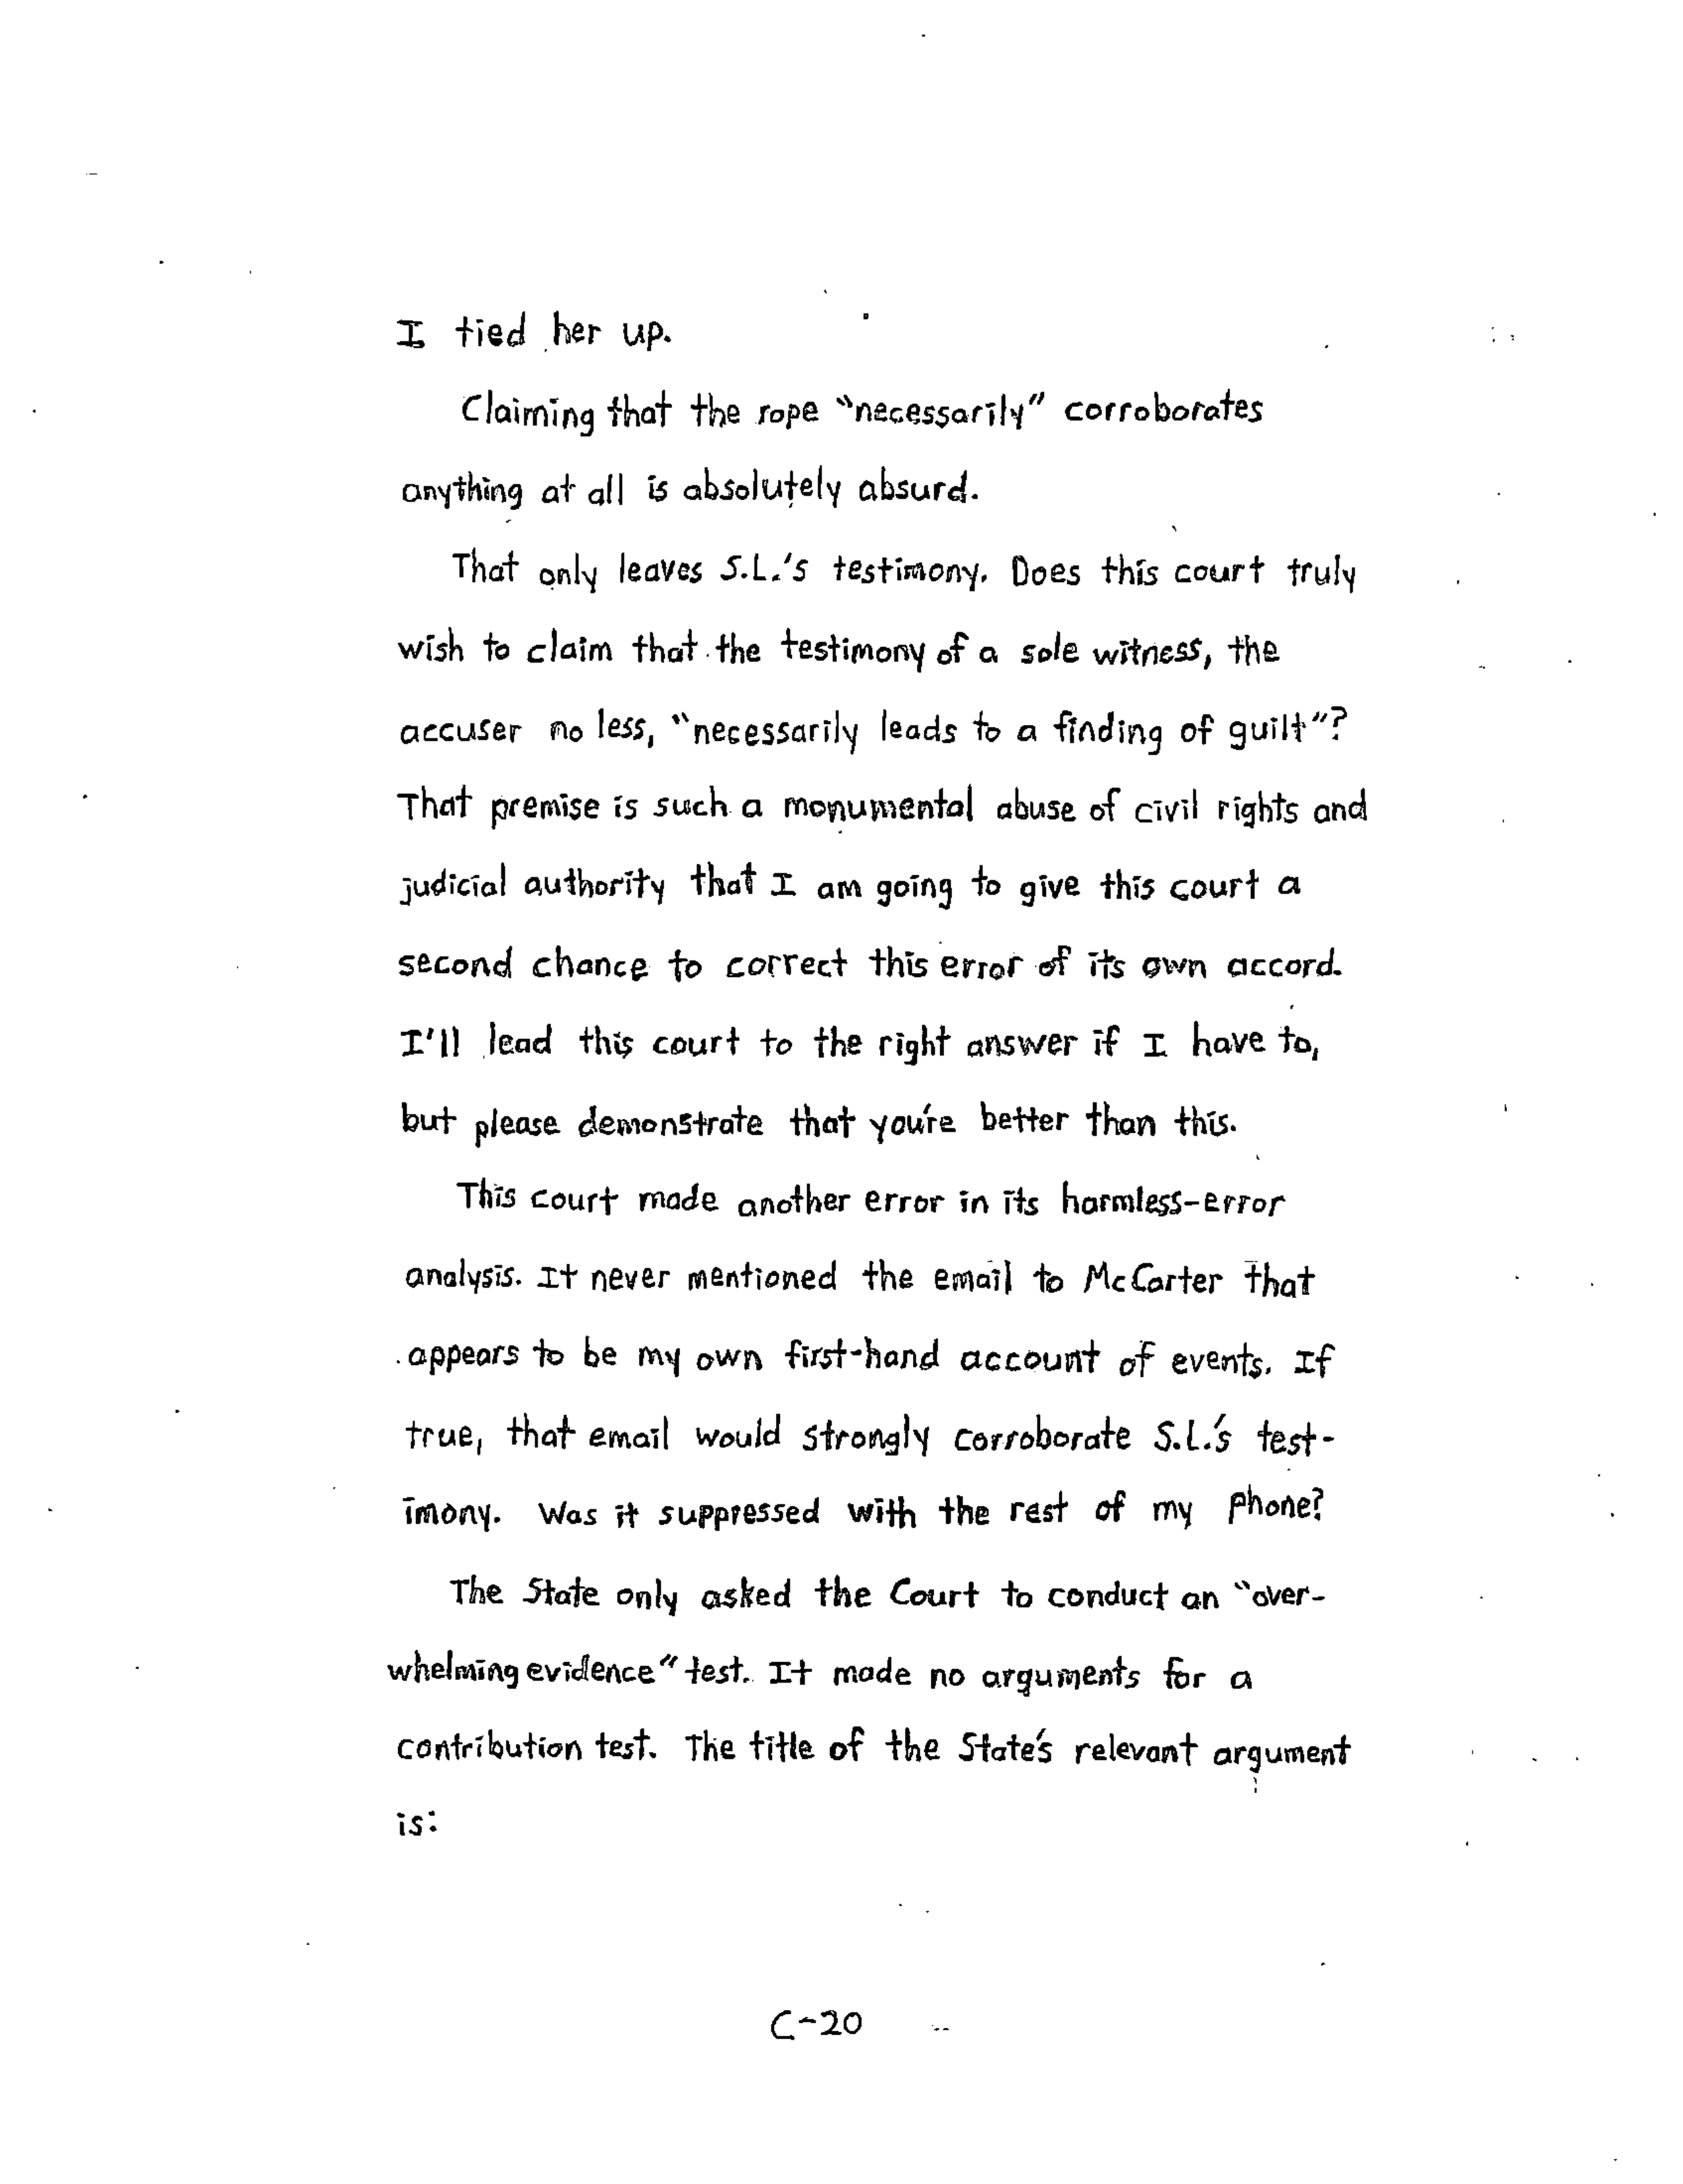 I tied her up.
Claiming that the rope "necessarily" corroborates
anything at all is absolutely absurd.
That only leaves S.L.'s testimony. Does this court truly
wish to claim that the testimony of a sole witness, the
accuser no less, "necessarily leads to a finding of guilt"?
That premise is such a monumental abuse of civil rights and
judicial authority that I am going to give this court a
second chance to correct this error of its own accord.
I'll lead this court to the right answer if I have to,
but please demonstrate that you're better than this.
This court made another error in its harmless-error
analysis. It never mentioned the email to McCarter that
appears to be my own first-hand account of events. If
true, that email would strongly corroborate S.L.'s test-
imony. Was it suppressed with the rest of my phone?
The State only asked the Court to conduct an "over-
whelming evidence" test. It made no arguments for a
contribution test. The title of the State's relevant argument
is:
C-20